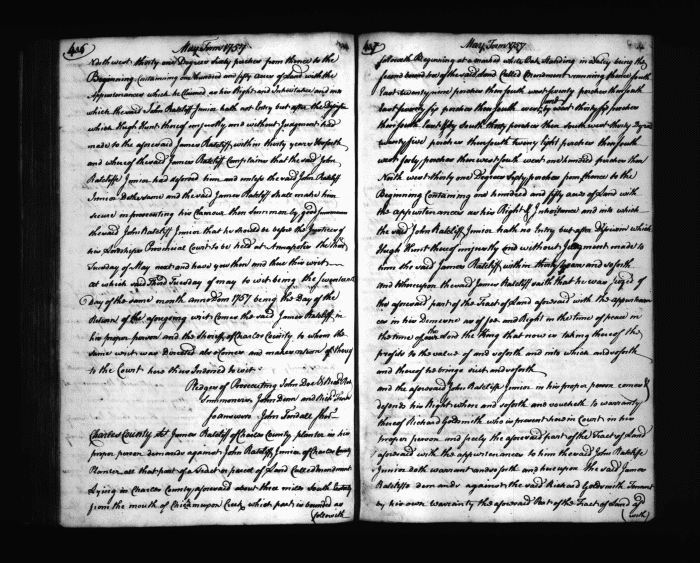 426
May Term 1757
North west thirty one Degrees Sixty perches from thence to the
Beginning containing one Hundred and fifty acres of Land with the
Appurtenances which he Claims as his Right and Inheritance and into
which the said John Ratcliff Junior hath not Entry but after the Disseisin
which Hugh Hunt thereof unjustly and without Judgment had
made to the aforesaid James Ratcliff within thirty years
and whereof the said James Ratcliff Complains that the said John
Ratcliff Junior had deforced him and unless the said John Ratcliff
Junior do the same and the said James Ratcliff shall make him
secure in prosecuting his Clamour then Summon by good Summoners
the said John Ratcliff Junior that he should be before the Justices of
his Lordships Provincial Court to be held at Annapolis the third
Tuesday of May next and have you then and there this writ
At which said third Tuesday of May to wit being the seventeenth
day of the same month anno Dom 1757 being the Day of the
Return of the aforegoing writ Comes the said James Ratcliff in
his proper person and the Sheriff of Charles County to whom the
same writ was directed also Comes and makes return of thereof
to the Court here thus Indorsed to wit
Pledges of Prosecuting John Doe & Richd Roe
Summoners John Denn and Richd Fenn
So answers John Tindall Shff
Charles County Sst James Ratcliff of Charles County planter in his
proper person demands against John Ratcliff Junior of Charles County
Planter all that part of a Tract or parcel of Land Called
Lying in Charles County aforesaid about three miles South
from the mouth of Chicamuxon Creek which part is bounded as
followeth
427
May Term 1757
followeth Beginning at a marked white Oak Standing in a Valley being the
second bounder of the said Land Called running thence south
East twenty nine perches then south west seventy perches then south
East seventy six perches then south west and twenty west thirty six perches
then south East fifty South thirty perches then South west thirty Degrees
twenty five perches then south twenty eight perches then south
west forty perches then west south west one hundred perches then
North west thirty one Degrees Sixty perches from thence to the
Beginning Containing one hundred and fifty acres of Land with
the appurtenances as his Right & Inheritance and into which
the said John Ratcliff Junior hath no Entry but after Disseisin which
Hugh Hunt thereof unjustly and without Judgment made to
him the said James Ratcliff within thirty years and so forth
and whereupon the said James Ratcliff saith that he was seized of
the aforesaid part of the Tract of Land aforesaid with the appurtenan
ces in his Demesne as of fee and Right in the time of peace in
the time of our Lord the King that now is taking thereof the
profits to the value of and so forth and into which and so forth
and thereof he brings suit and so forth
and the aforesaid John Ratcliff Junior in his proper person comes &
defends his Right when and so forth and voucheth to warranty
thereof Richard Goldsmith who is present here in Court in his
proper person and freely the aforesaid part of the Tract of Land
aforesaid with the appurtenances to him the said John Ratcliff
Junior doth warrant and so forth and hereupon the said James
Ratcliff demands against the said Richard Goldsmith Tenant
by his own warranty the aforesaid Part of the Tract of Land afd
(with)